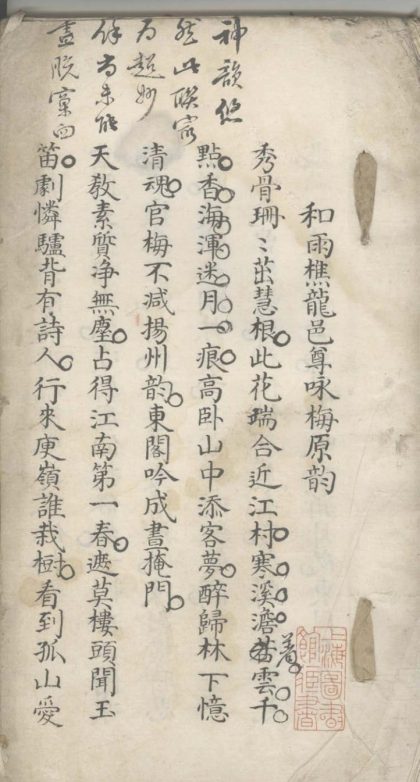 和雨樵龍邑尊咏梅原韵
秀骨珊〻茁慧根此花瑞合近江村寒溪澹若雲千
着
點香海渾迷月一痕高卧山中添客夢醉歸林下憶
清魂官梅不減揚州韵東閣吟成晝掩門
天教素質净無塵占得江南第一春遮莫樓頭聞玉
笛劇憐驢背有詩人行來庾嶺誰栽樹看到孤山愛
神韻悠
然此聯
为超妙
餘尚未能
盡脫窠臼
上海圖書
館藏書